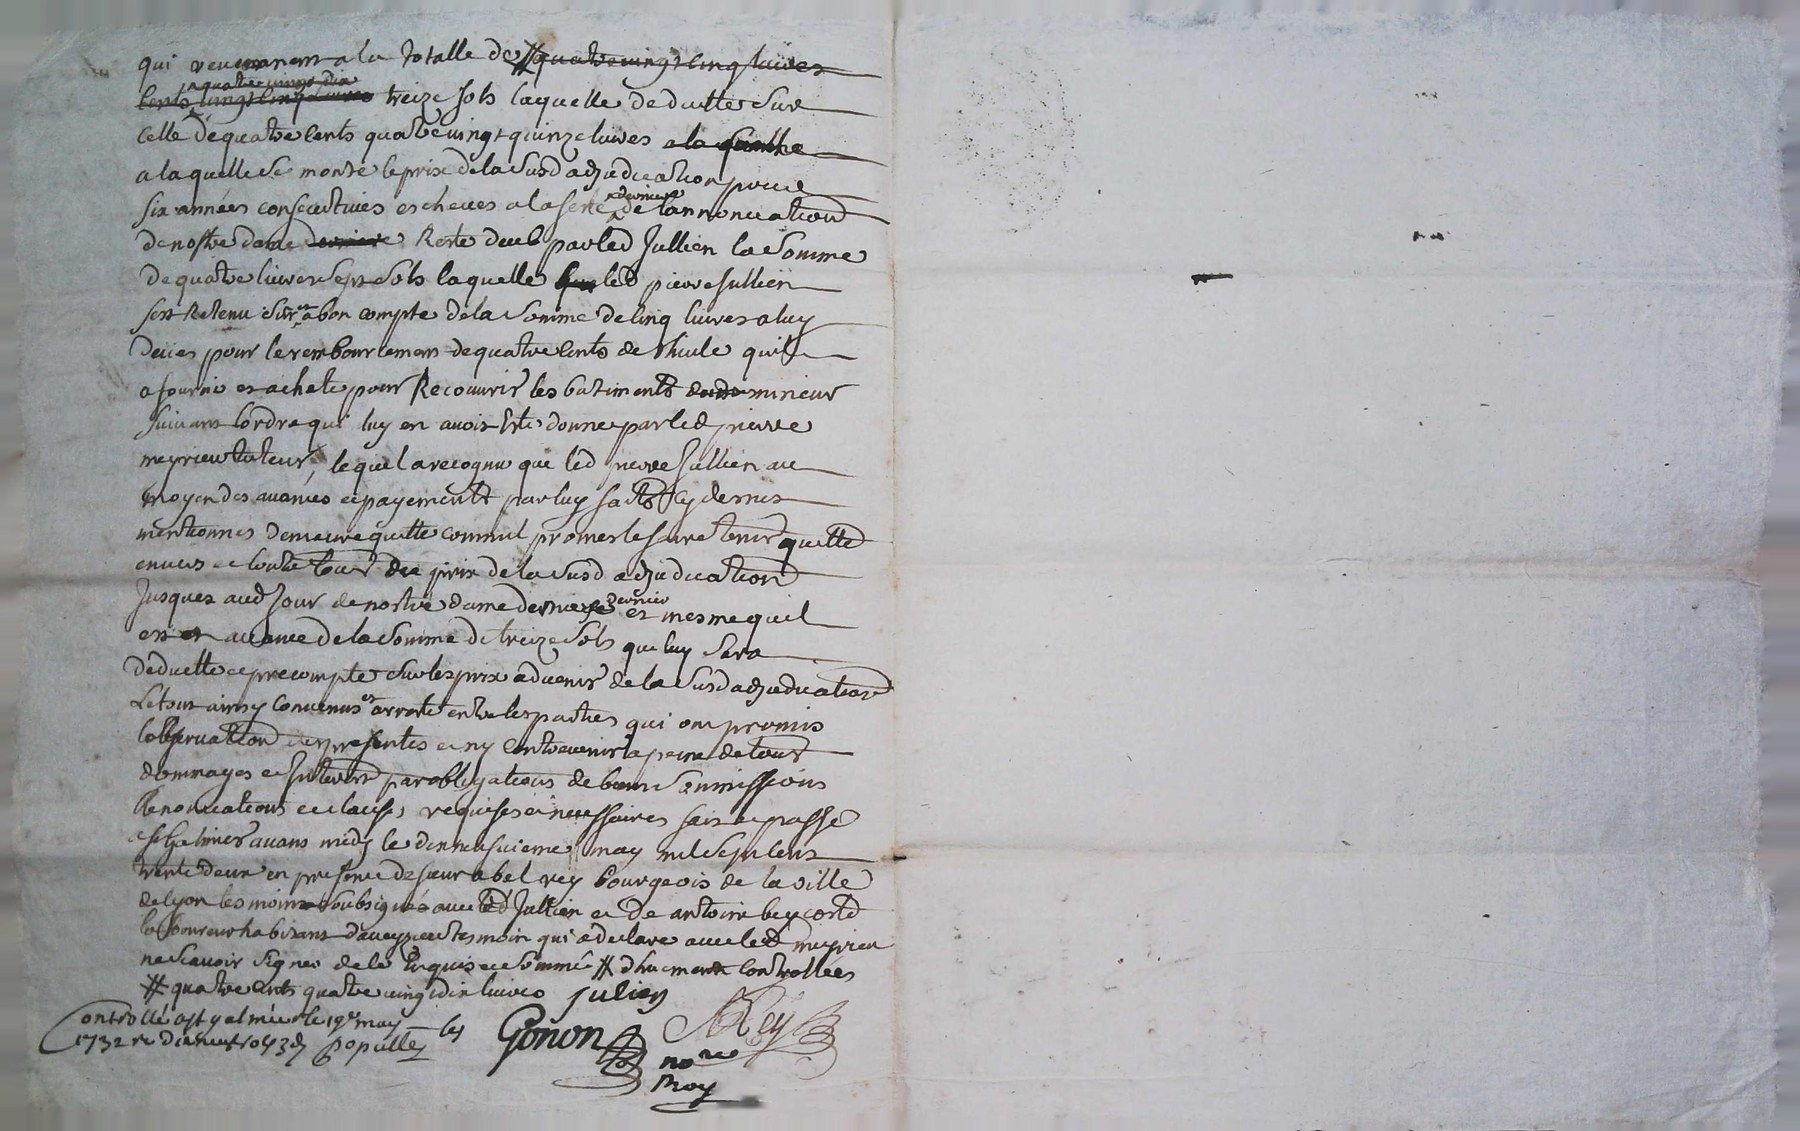 qui reviennent a la totalle de # quatre vingt cinq livres
cents vingt cinq livres a quatre vingt dix treize sols laquelle deduitte sur
celle de quatre cents quatre vingt quinze livres a la somme
a laquelle se monte le prix de la susd adjudication pour
six années consecutives escheues a la feste derniere de lannonciation
de nostre dame derniere Reste deub par led Jullien la somme
de quatre livres sept sols laquelle led pierre Jullien
sest Retenu sur et a bon compte de la somme de cinq livres a luy
deües pour le remboursement de quatre cents de thuile quil
a fourni et achete pour Recouvrir les batiments mineur
suivant lordre qui luy en avoit este donne par led pierre
meyrieu tuteur, lequel a recognu que led pierre Jullien au
moyen des avances et payements par luy faits cy dessus
mentionnes demeure quitte comme il promet le faire tenir quitte
envers et contre tous du prix de la susd adjudication
Jusques aud Jour de nostre dame derniere dernier et mesme quil
est en avance de la somme de treize sols que luy sera
deduitte et precompte sur les prix advenir de la susd adjudication
Le tout ainsy convenus et arresté entre les parties qui ont promis
lobservation des presentes et ny contrevenir a peine de tous
dommages et Interests par obligations de biens soumissions
Renonciations et clauses requises et necessaires fait et passé
a st galmier avant midy le dix neufvieme may mil sept cent
trente deux en presence de sieur abel rey bourgeois de la ville
de lyon les moins soubsigné avec led Jullien et de antoine
laboureur habitant tesmoin qui a declare avec led meyrieu
ne scavoir signer de ce Enquis et sommé # dhuement controllées
# quatre cents quatre vingt dix livres Julien
Controllé a st galmier le 19e may
1732 Populle
Gonon
ARey
nore
Roy